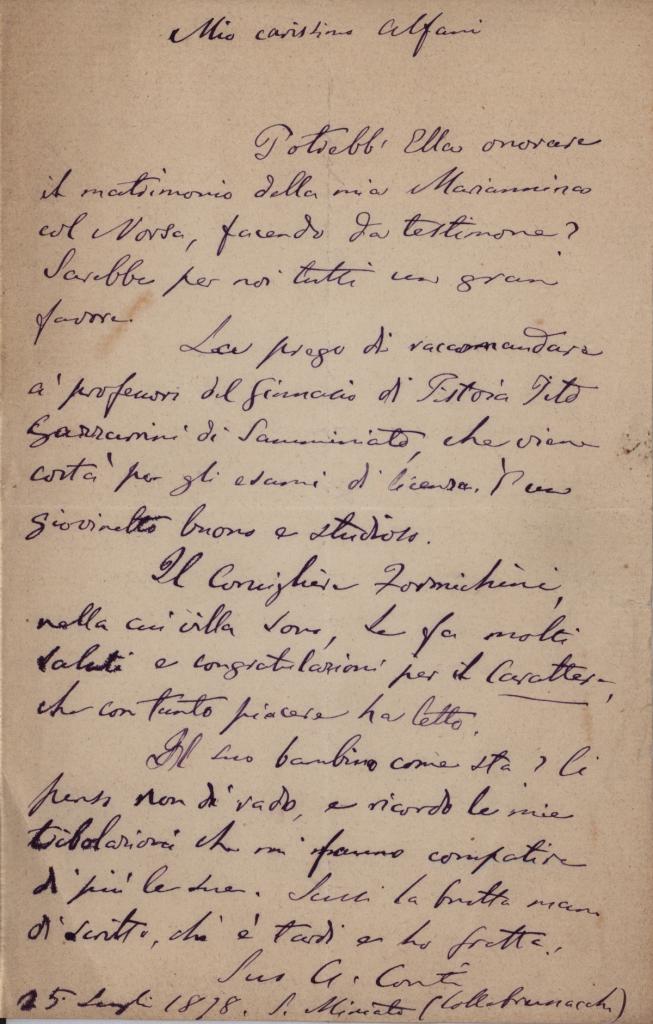 Mio carissimo Alfani
Potrebb' Ella onorare
il matrimonio della mia Mariannina
col Norsa, facendo da testimone?
Sarebbe per noi tutti un gran
favore.
La prego di raccomandare
a' professori del Ginnasio di Pistoia Tito
Gazzarrini di Samminiato, che viene
costà per gli esami di licenza. È un
giovinetto buono e studioso.
Il Consigliere Formichini,
nella cui villa sono, Le fa molti
saluti e congratulazioni per il Carattere,
che con tanto piacere ha letto.
Il suo bambino come sta? Ci
penso non di rado, e ricordo le mie
tribolazioni che mi fanno compatire
di più le sue. Scusi la brutta mano
di scritto, chè è tardi e ho fretta.
Suo A. Conti
25 Luglio 1878. S. Miniato (Collebrunacchi)